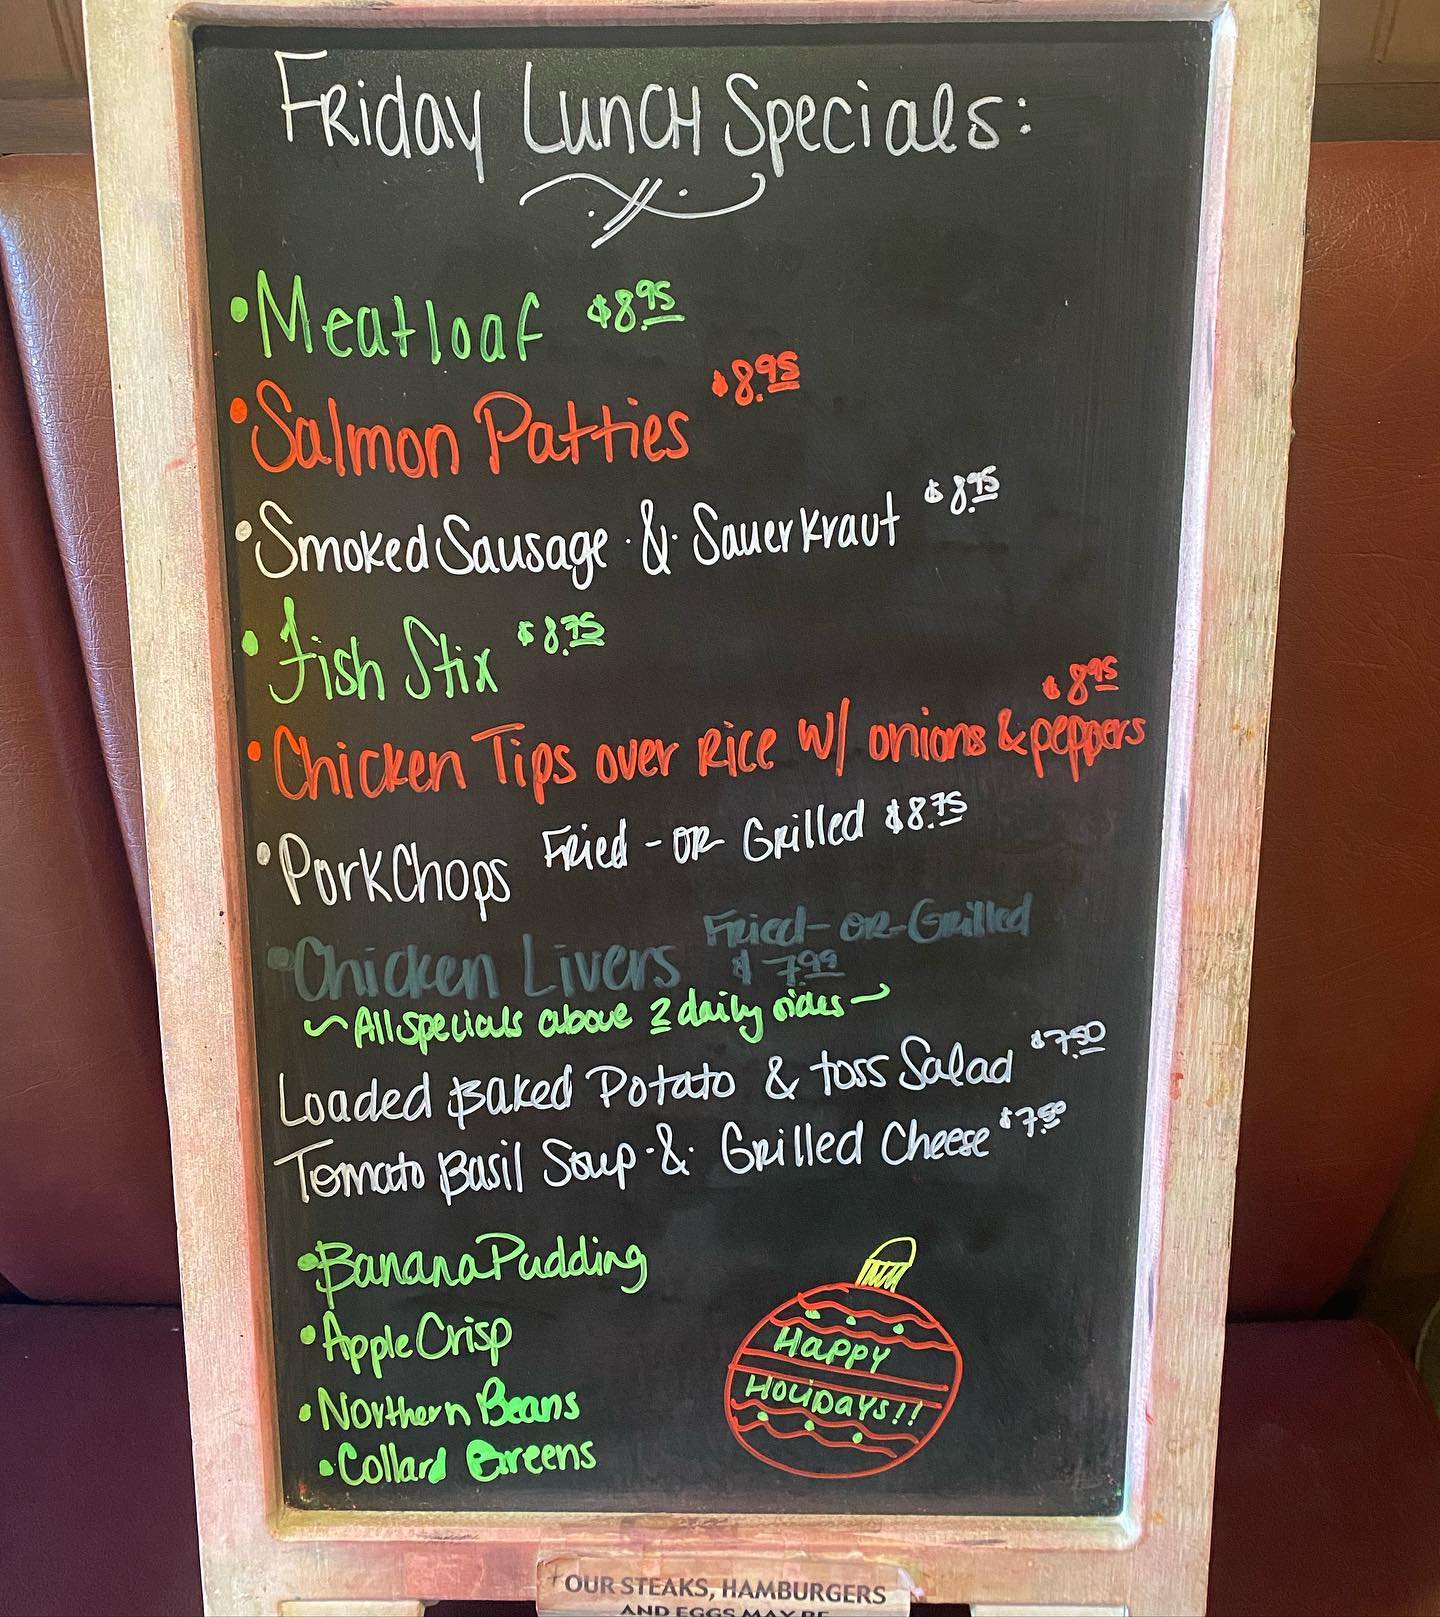 Friday Lunch Specials:
• Meatloaf $8.95
• Salmon Patties $8.95
• Smoked Sausage & Sauerkraut $8.95
• Fish Stix $8.75
• Chicken Tips over Rice w/ onions & peppers $8.95
• Pork Chops Fried -OR- Grilled $8.75
• Chicken Livers Fried-OR-Grilled $7.99
~All specials above 2 daily sides~
Loaded Baked Potato & toss Salad $7.50
Tomato Basil Soup & Grilled Cheese $7.50
• Banana Pudding
• Apple Crisp
• Northern Beans
• Collard Greens
Happy
Holidays!!
OUR STEAKS, HAMBURGERS
AND EGGS MAY BE